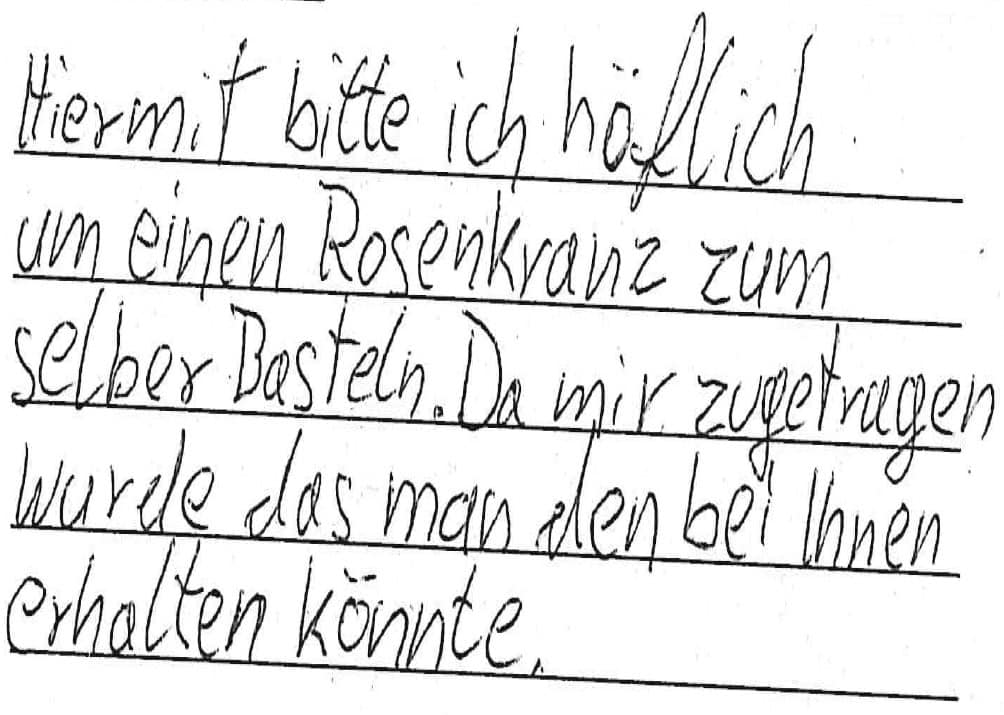 Hiermit bitte ich höflich
um einen Rosenkranz zum
selber Basteln. Da mir zugetragen
wurde das man den bei Ihnen
erhalten könnte.